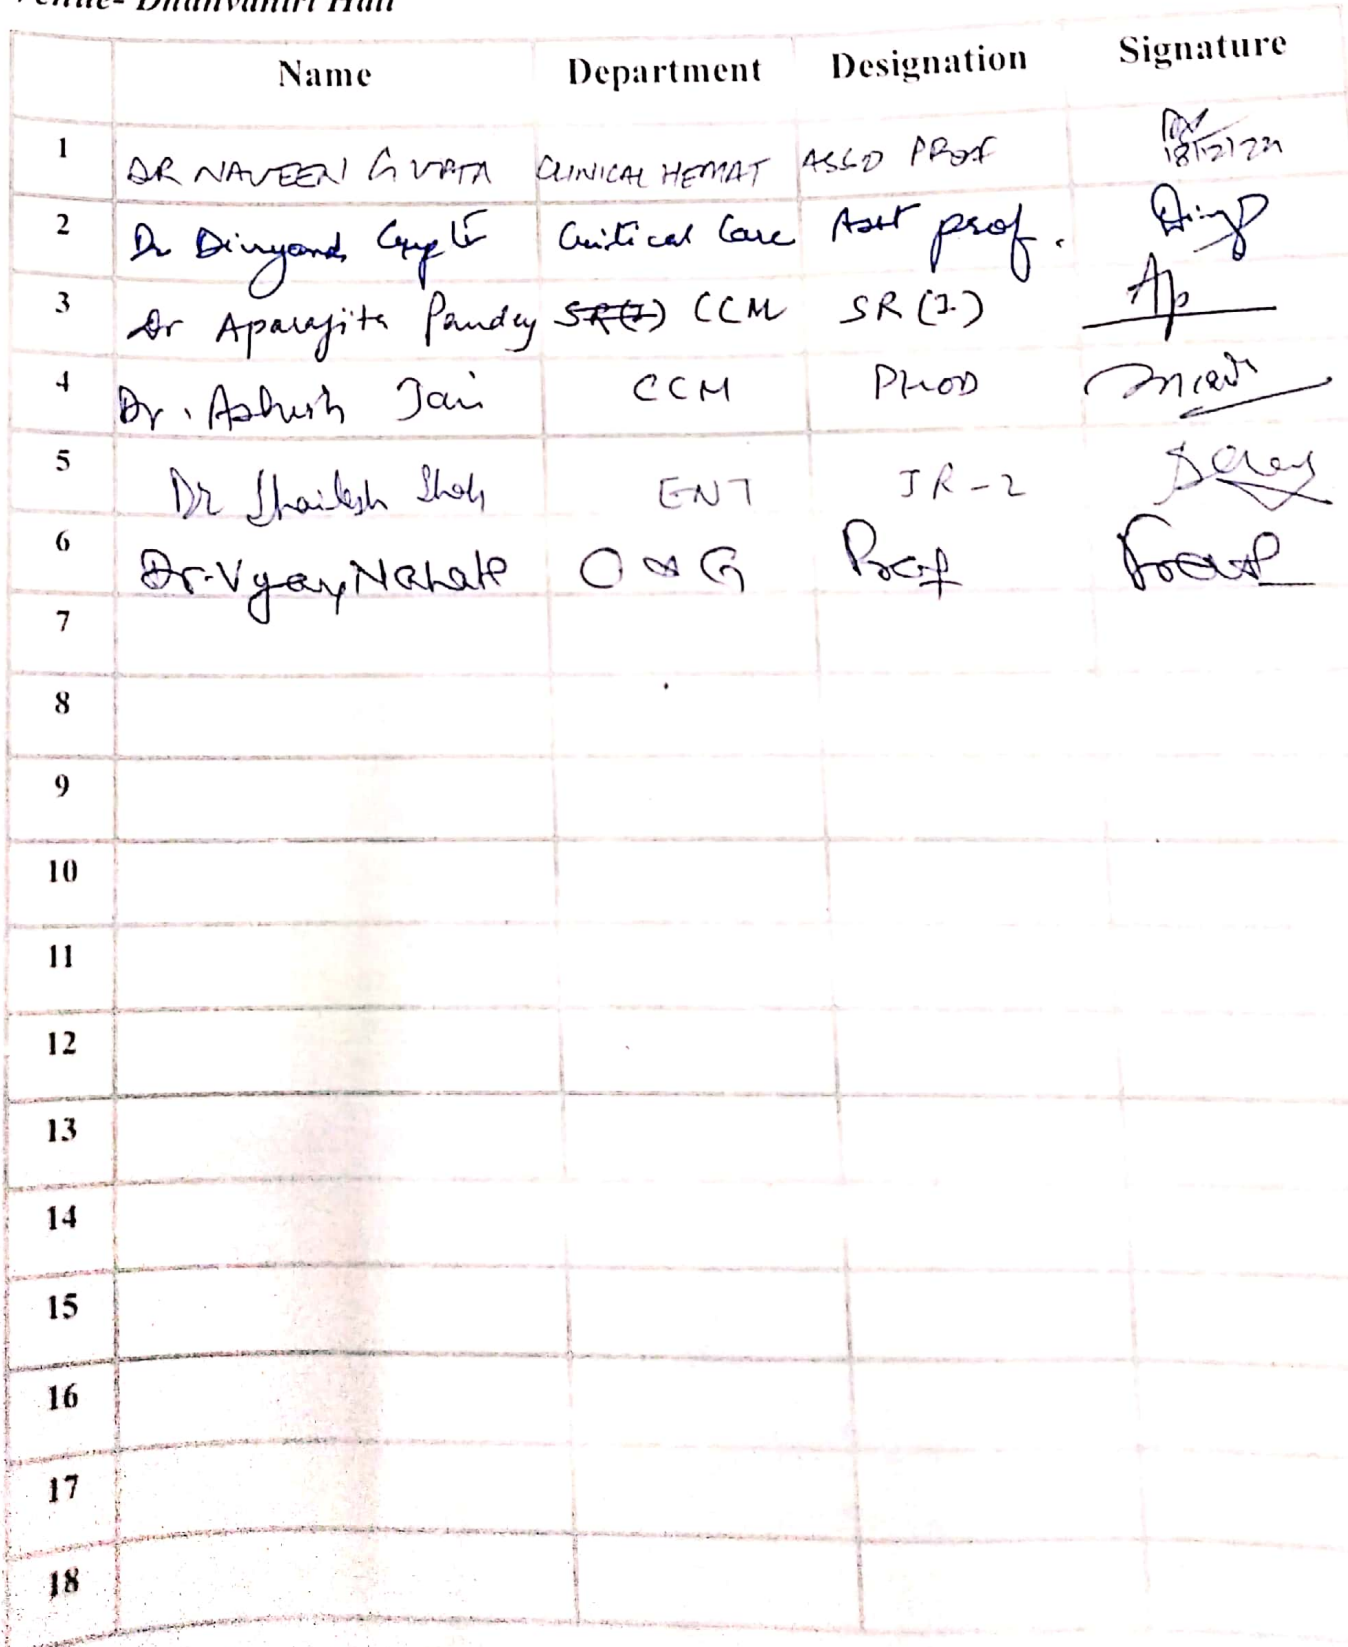 Venue- Dhanvantri Hall
Name Department Designation Signature
1 DR NAVEEN GUPTA CLINICAL HEMAT ASSO PROF 18/12/22
2 Dr Gupta Critical Care Asst prof.
3 Dr Aparajita Pandey SR(I) CCM SR (I) Ap
4 Dr. Ashish Jain CCM PHOD
5 Dr Shailesh Shah ENT JR-2
6 Dr. Vijay O & G Prof
7
8
9
10
11
12
13
14
15
16
17
18